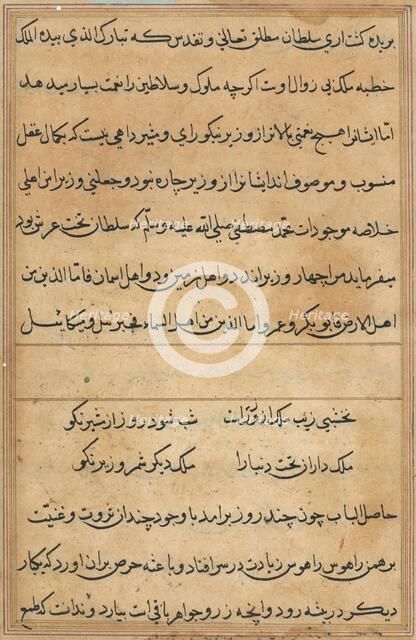 بریده کشت اری سلطان مطلق تعالی و تقدس که تبارک الذی بیده الملک
خطبه ملک بی زوال اوست اگرچه ملوک و سلاطین را نعمت بسیار میدهد
اما ایشانرا هیچ نعمتی بالاتر از وزیر نیکو رای و مشیر داهی نیست که بکمال عقل
منسوب و موصوف اند ایشانرا از وزیر چاره نبود و جعلنی وزیرا من اهلی
خلاصه موجودات محمد مصطفی صلی الله علیه و سلم که سلطان تخت عرش بود
میفرماید مرا چهار وزیراند دو اهل زمین و دو اهل اسمان فاما الذین من
اهل الارض فابوبکر و عمر و اما الذین من اهل السماء فجبرئیل و میکائیل
نخشبی زیب ملک از وزراست شب شود روز از مشیر نکو
ملک داران تخت دنیا را ملک دیگر شمر وزیر نکو
حاصل الباب چون چند روز برامد با وجود چندان ثروت و غنیت
برهمن را هوس زیادت در سر افتاد و باعثه حرص بران اورد که یکبار
دیگر در بیشه رود و انچه زر و جواهر باقی است بیارد و ندانست که طمع
© Heritage Images